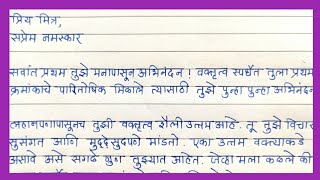 प्रिय मित्र,
सप्रेम नमस्कार
सर्वात प्रथम तुझे मनापासून अभिनंदन ! वक्तृत्व स्पर्धेत तुला प्रथम
क्रमांकाचे पारितोषिक मिळाले त्यासाठी तुझे पुन्हा पुन्हा अभिनंदन
लहानपणापासूनच तुझी वक्तृत्व शैली उत्तम आहे. तू तुझे विचार
सुसंगत आणि मुद्देसुदपणे मांडतो. एका उत्तम वक्त्याकडे
असावे असे सगळे गुण तुझ्यात आहेत. जेव्हा मला कळले की